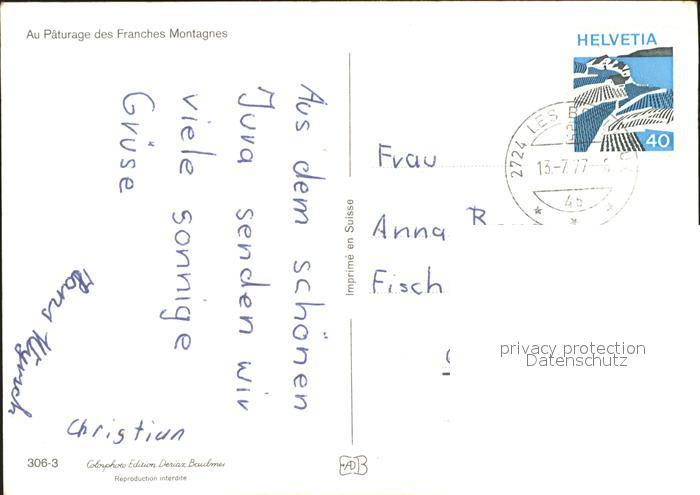 Au Pâturage des Franches Montagnes
Aus dem schönen
Jura senden wir
viele sonnige
Grüse
Hans
Christian
306-3
Colorphoto Edition Deriaz Baulmes
Reproduction interdite
Imprimé en Suisse
HELVETIA
40
2724 LES B
13.-7.77-8
Frau
Anna R
Fisch
privacy protection
Datenschutz